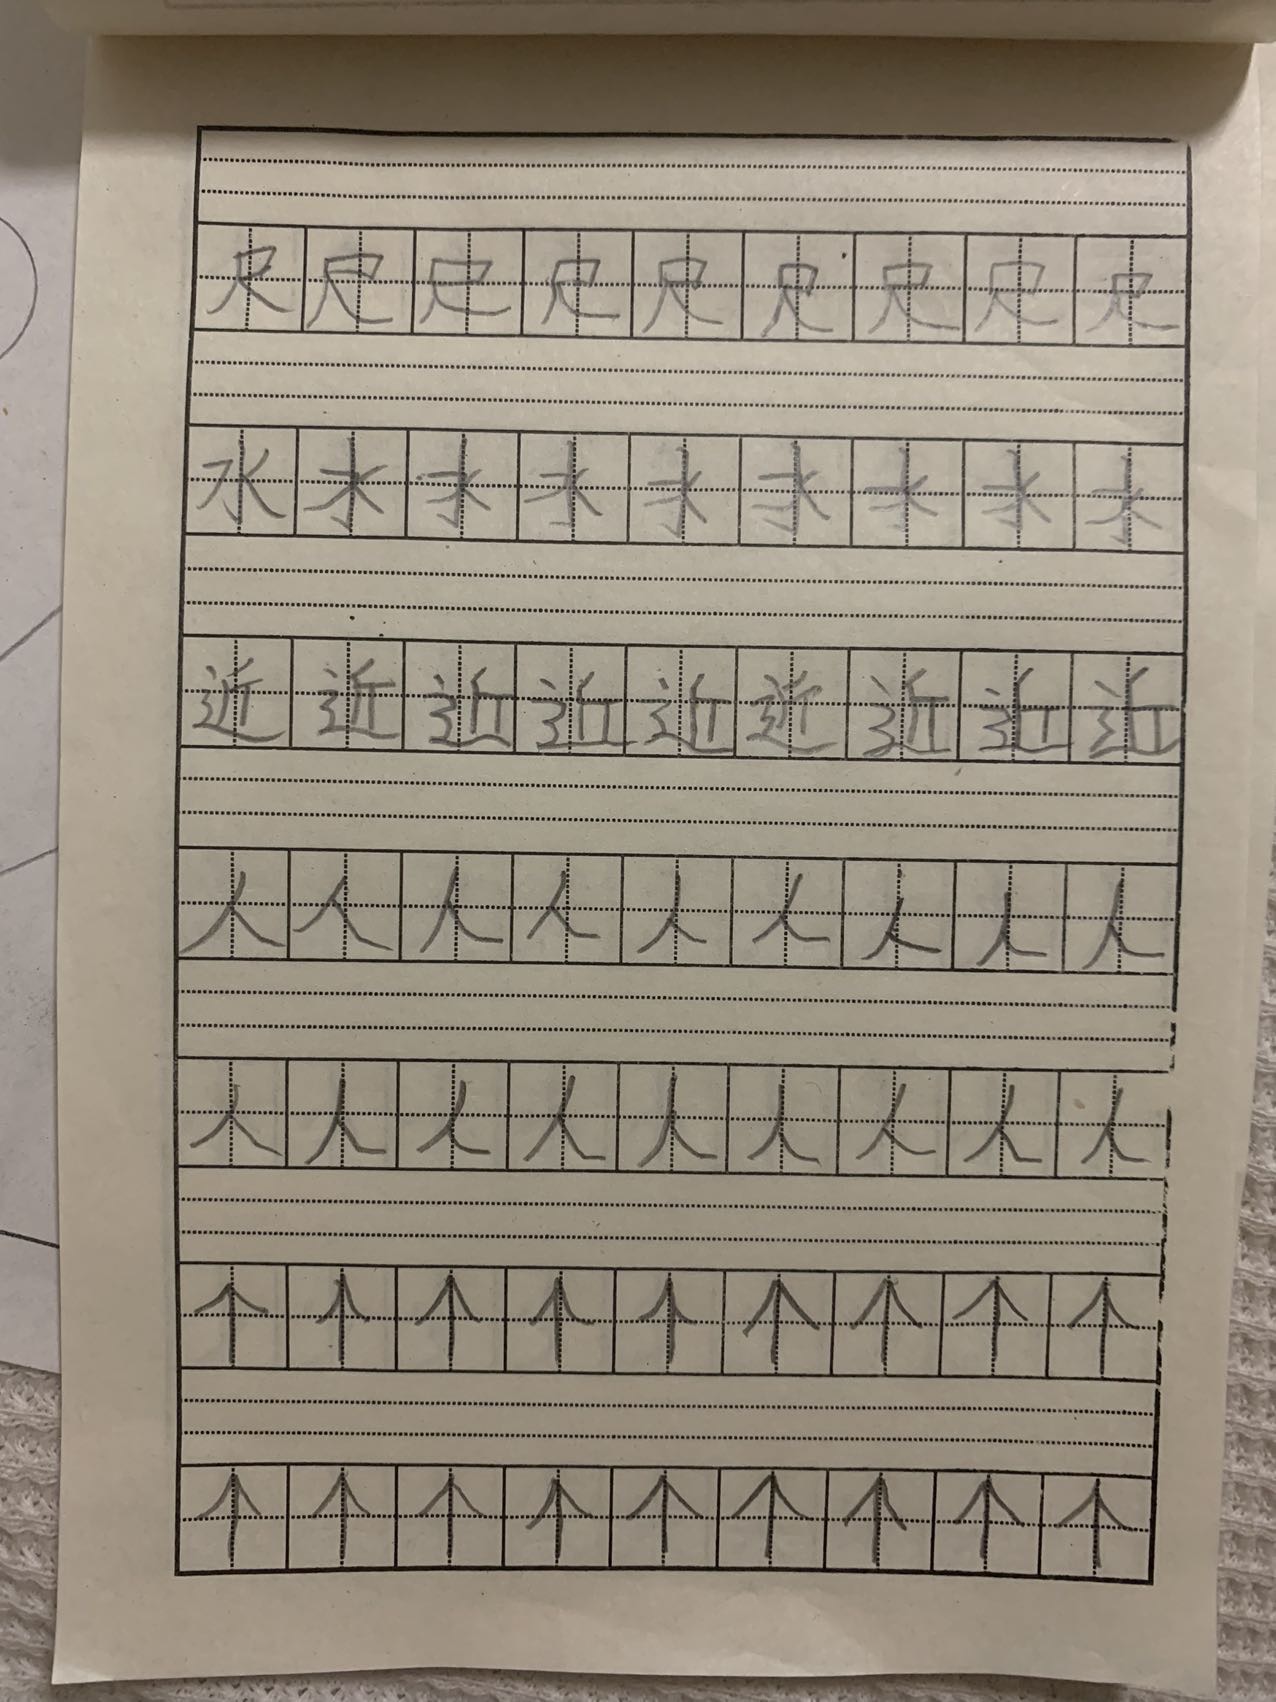 尺尺尺尺尺尺尺尺尺
水水水水水水水水水
近近近近近近近近近
人人人人人人人人人
人人人人人人人人人
个个个个个个个个个
个个个个个个个个个